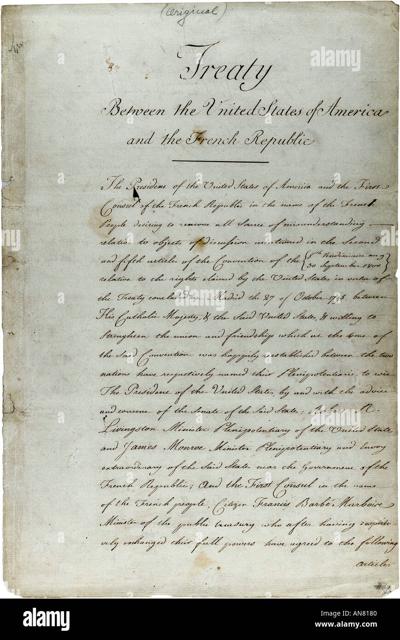 (Original)
Treaty
Between the United States of America
and the French Republic
The President of the United States of America and the First
Consul of the French Republic in the name of the French
People desiring to remove all Source of misunderstanding
relative to objects of discussion mentioned in the Second
and fifth articles of the Convention of the 8th Vendémiaire an 9
30 September 1800
relative to the rights claimed by the United States in virtue of
the Treaty concluded at Madrid the 27 of October 1795, between
His Catholic Majesty, & the Said United States, & willing to
Strengthen the union and friendship which at the time of
the Said Convention was happily reestablished between the two
nations have respectively named their Plenipotentiaries to wit
The President of the United States, by and with the advice
and consent of the Senate of the Said States; Robert R.
Livingston Minister Plenipotentiary of the United States
and James Monroe Minister Plenipotentiary and Envoy
extraordinary of the Said States near the Government of the
French Republic; And the First Consul in the name
of the French people, Citizen Francis Barbé Marbois
Minister of the public treasury who after having respecti-
vely exchanged their full powers have agreed to the following
articles
alamy
alamy stock photo
AN8180
www.alamy.com